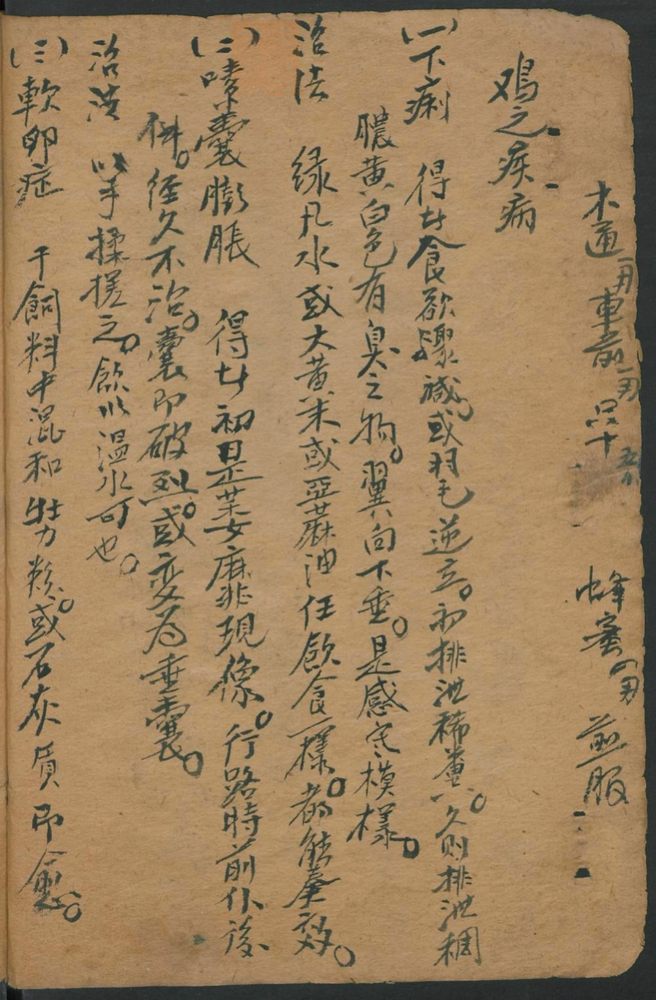 木通 車前 只十 蜂蜜 煎服
鸡之疾病
(一)下痢 得廿食欲驟减。或羽毛逆立。初排泄稀糞。久则排泄稠
膿黄白色有臭之物。翼向下垂。是感寒模樣。
治法 绿凡水或大黄末或亞蔴油任飲食一様。都能奏效。
(二)嗉囊膨脹 得廿初呈芙麻非現像。行路時前仆後
仆。經久不治。囊即破烈。或变为垂囊。
治法 以手揉搓之。飲以温水可也。
(三)軟卵症 于飼料中混和牡力粉。或石灰質即愈。